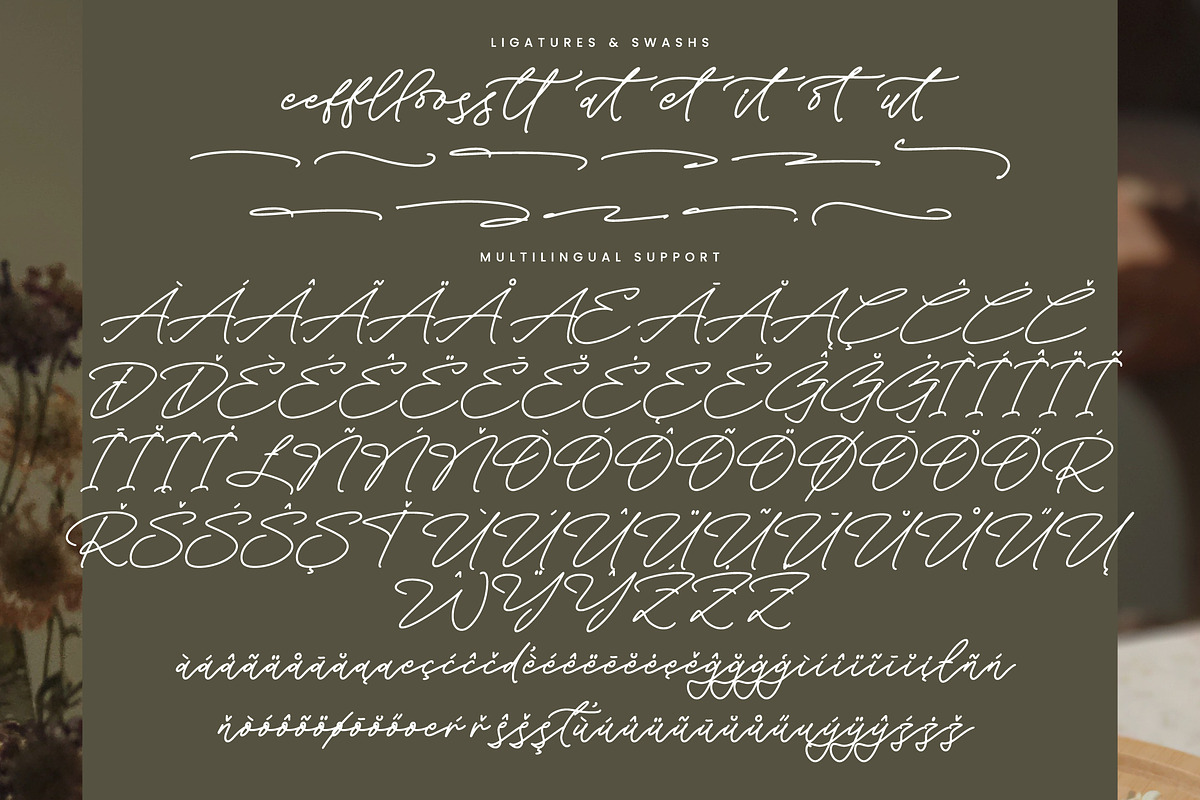 LIGATURES & SWASHS
eefflloosstt at et it ot ut
MULTILINGUAL SUPPORT
ÀÁÂÃÄÅÆĀĂĄÇĆĈĊČ
ĐĎÈÉÊËĒĔĖĘĚĜĞĠÌÍÎÏĨ
ĪĬĮİŁÑŃŇÒÓÔÕÖØŌŎŐŔ
ŘŠŚŜŞŤÙÚÛÜŨŪŬŮŰŲ
ŴŸŶŹŻŽ
àáâãäåāăąæçćĉċčďèéêëēĕėęěĝğġģìíîïĩīĭįłñń
ňòóôõöøōŏőœŕřŝšşťùúûüũūŭůűųýÿŷźżž